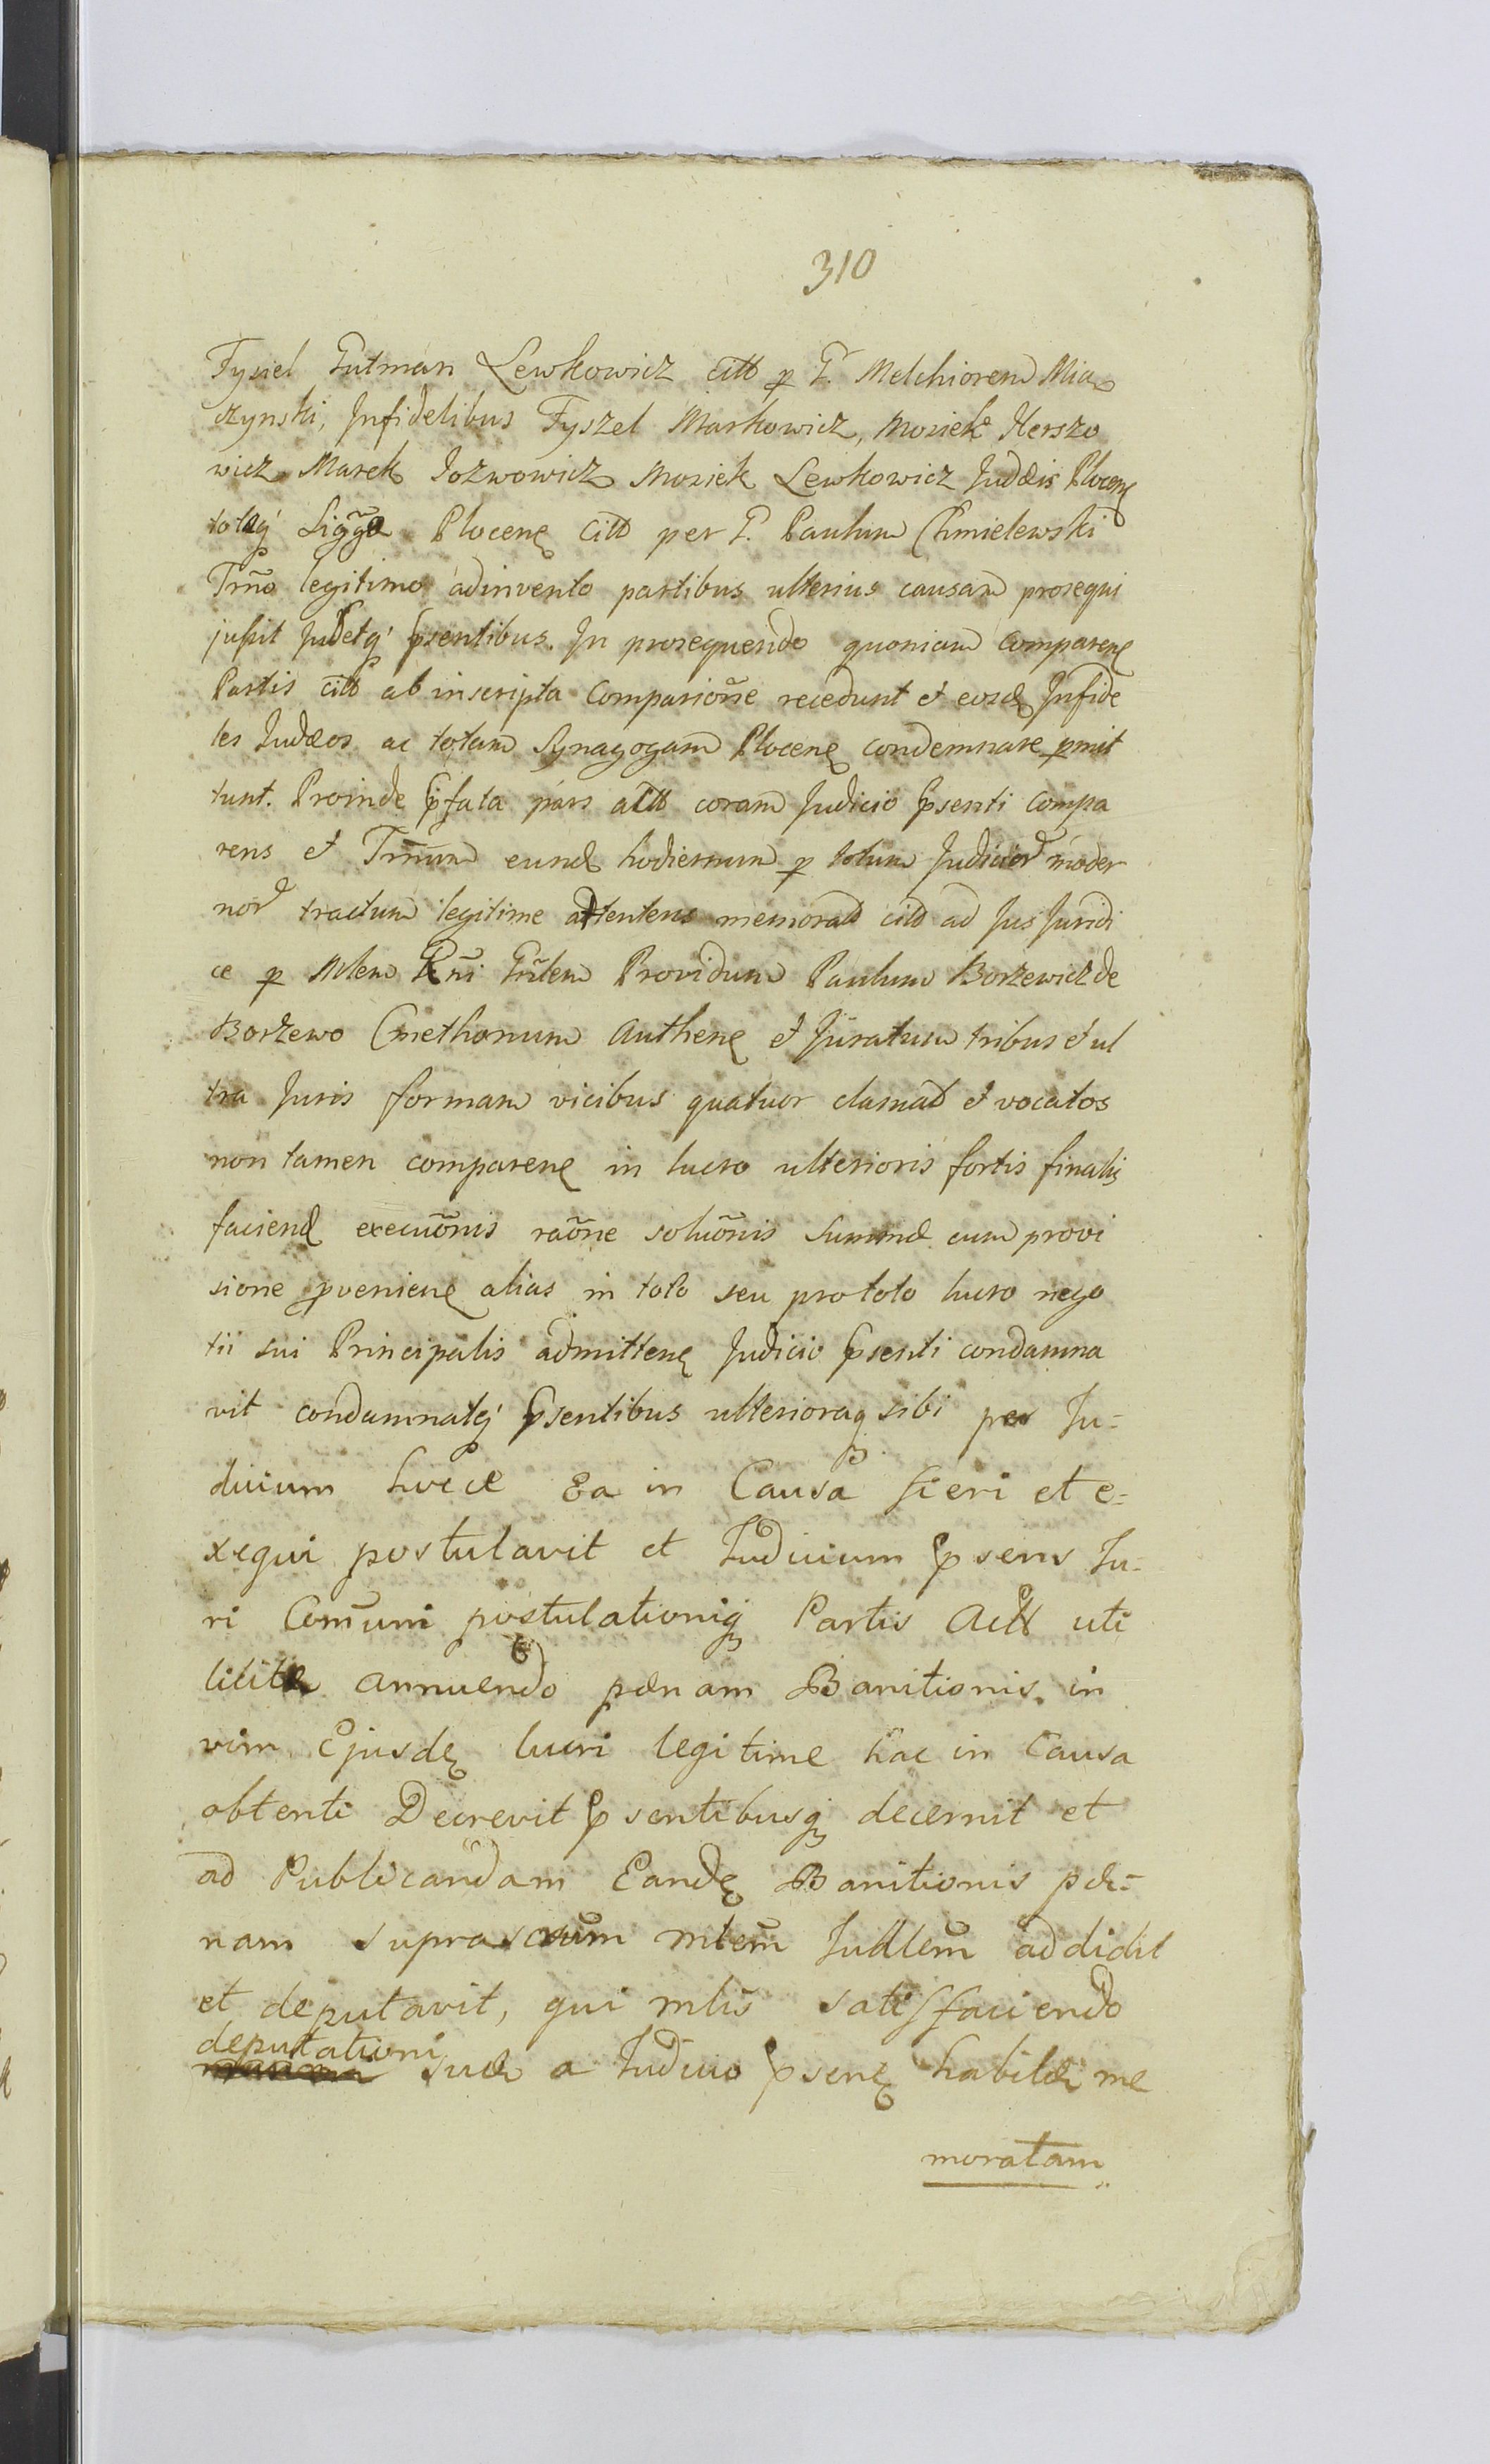 310
Fysiel Gutman Lewkowicz citt p G. Melchiorem Mia
czynski, Infidelibus Fyszel Markowicz, Mosiek Herszo
wicz Marek Jozwowicz Mosiek Lewkowicz Judæis Plocen
totaq́ Sigg̃a Plocen citt per G. Paulum Chmielewski
Trño legitimo adinvento partibus ulterius causam prosequi
jussit Jubetq́ psentibus. In prosequendo quoniam comparen
Partis citt ab inscripta comparioñe recedunt et eosd Infide
les Judæos ac totam Synagogam Plocen condemnare pmit
tunt. Proinde pfata pars actt coram Judicio psenti compa
rens et Trm̃um eund hodiernum p totum Judicior moder
nor tractum legitime attentens memorat citt ad Jus Juridi
ce p Mlem Rñi Gñlem Providum Paulum Borzewicz de
Borzewo Cmethonum Authen et Juratum tribus et ul
tra Juris formam vicibus quatuor clamat et vocatos
non tamen comparen in lucro ulterioris fortis finalis
faciend execuõnis raõne soluõnis Summæ cum provi
sione pvenien alias in toto seu pro toto lucro nego
tii sui Principalis admitten Judicio psenti condamna
vit condamnatq́ psentibus ulterioraq sibi per Ju=
dicium hocce Ea in Causa fieri et e=
xequi postulavit et Judicium psens Ju-
ri Com̃uni postulationiq Partis Actt uti
licitæ annuendo pænam Banitionis in
vim Ejusde lucri legitime hac in Causa
obtenti Decrevit psentibusq decernit et
ad Publicandam Eande Banitionis pæ=
nam suprascrum̃ mlem̃ Judlem̃ addidit
et deputavit, qui mlis̃ satisfaciendo
deputationi suæ a Judicio psen habitæ me
moratam